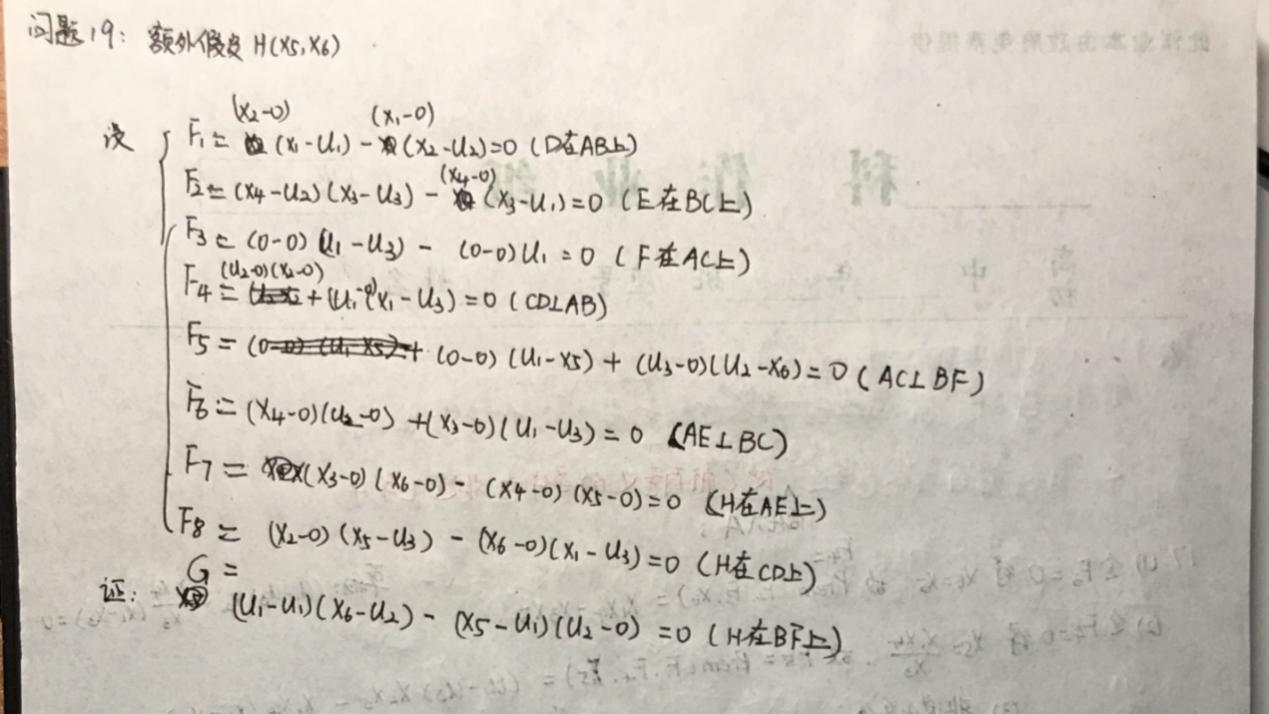 问题19: 额外假负 H(x5,x6)
(x2-0) (x1-0)
设 F1= (x1-u1) - (x2-u2)=0 (D在AB上)
(x4-0)
F2= (x4-u2)(x3-u3) - (x3-u1)=0 (E在BC上)
F3= (0-0)(u1-u3) - (0-0)u1=0 (F在AC上)
(u2-0)(x2-0)
F4= +(u1-0)(x1-u3)=0 (CD⊥AB)
F5= (0-0)(u1-x5)+(0-0)(u1-x5)+(u3-0)(u2-x6)=0 (AC⊥BF)
F6= (x4-0)(u2-0)+(x3-0)(u1-u3)=0 (AE⊥BC)
F7= (x3-0)(x6-0)-(x4-0)(x5-0)=0 (H在AE上)
F8= (x2-0)(x5-u3)-(x6-0)(x1-u3)=0 (H在CD上)
G=
证: (u1-u1)(x6-u2)-(x5-u1)(u2-0)=0 (H在BF上)
科 作业